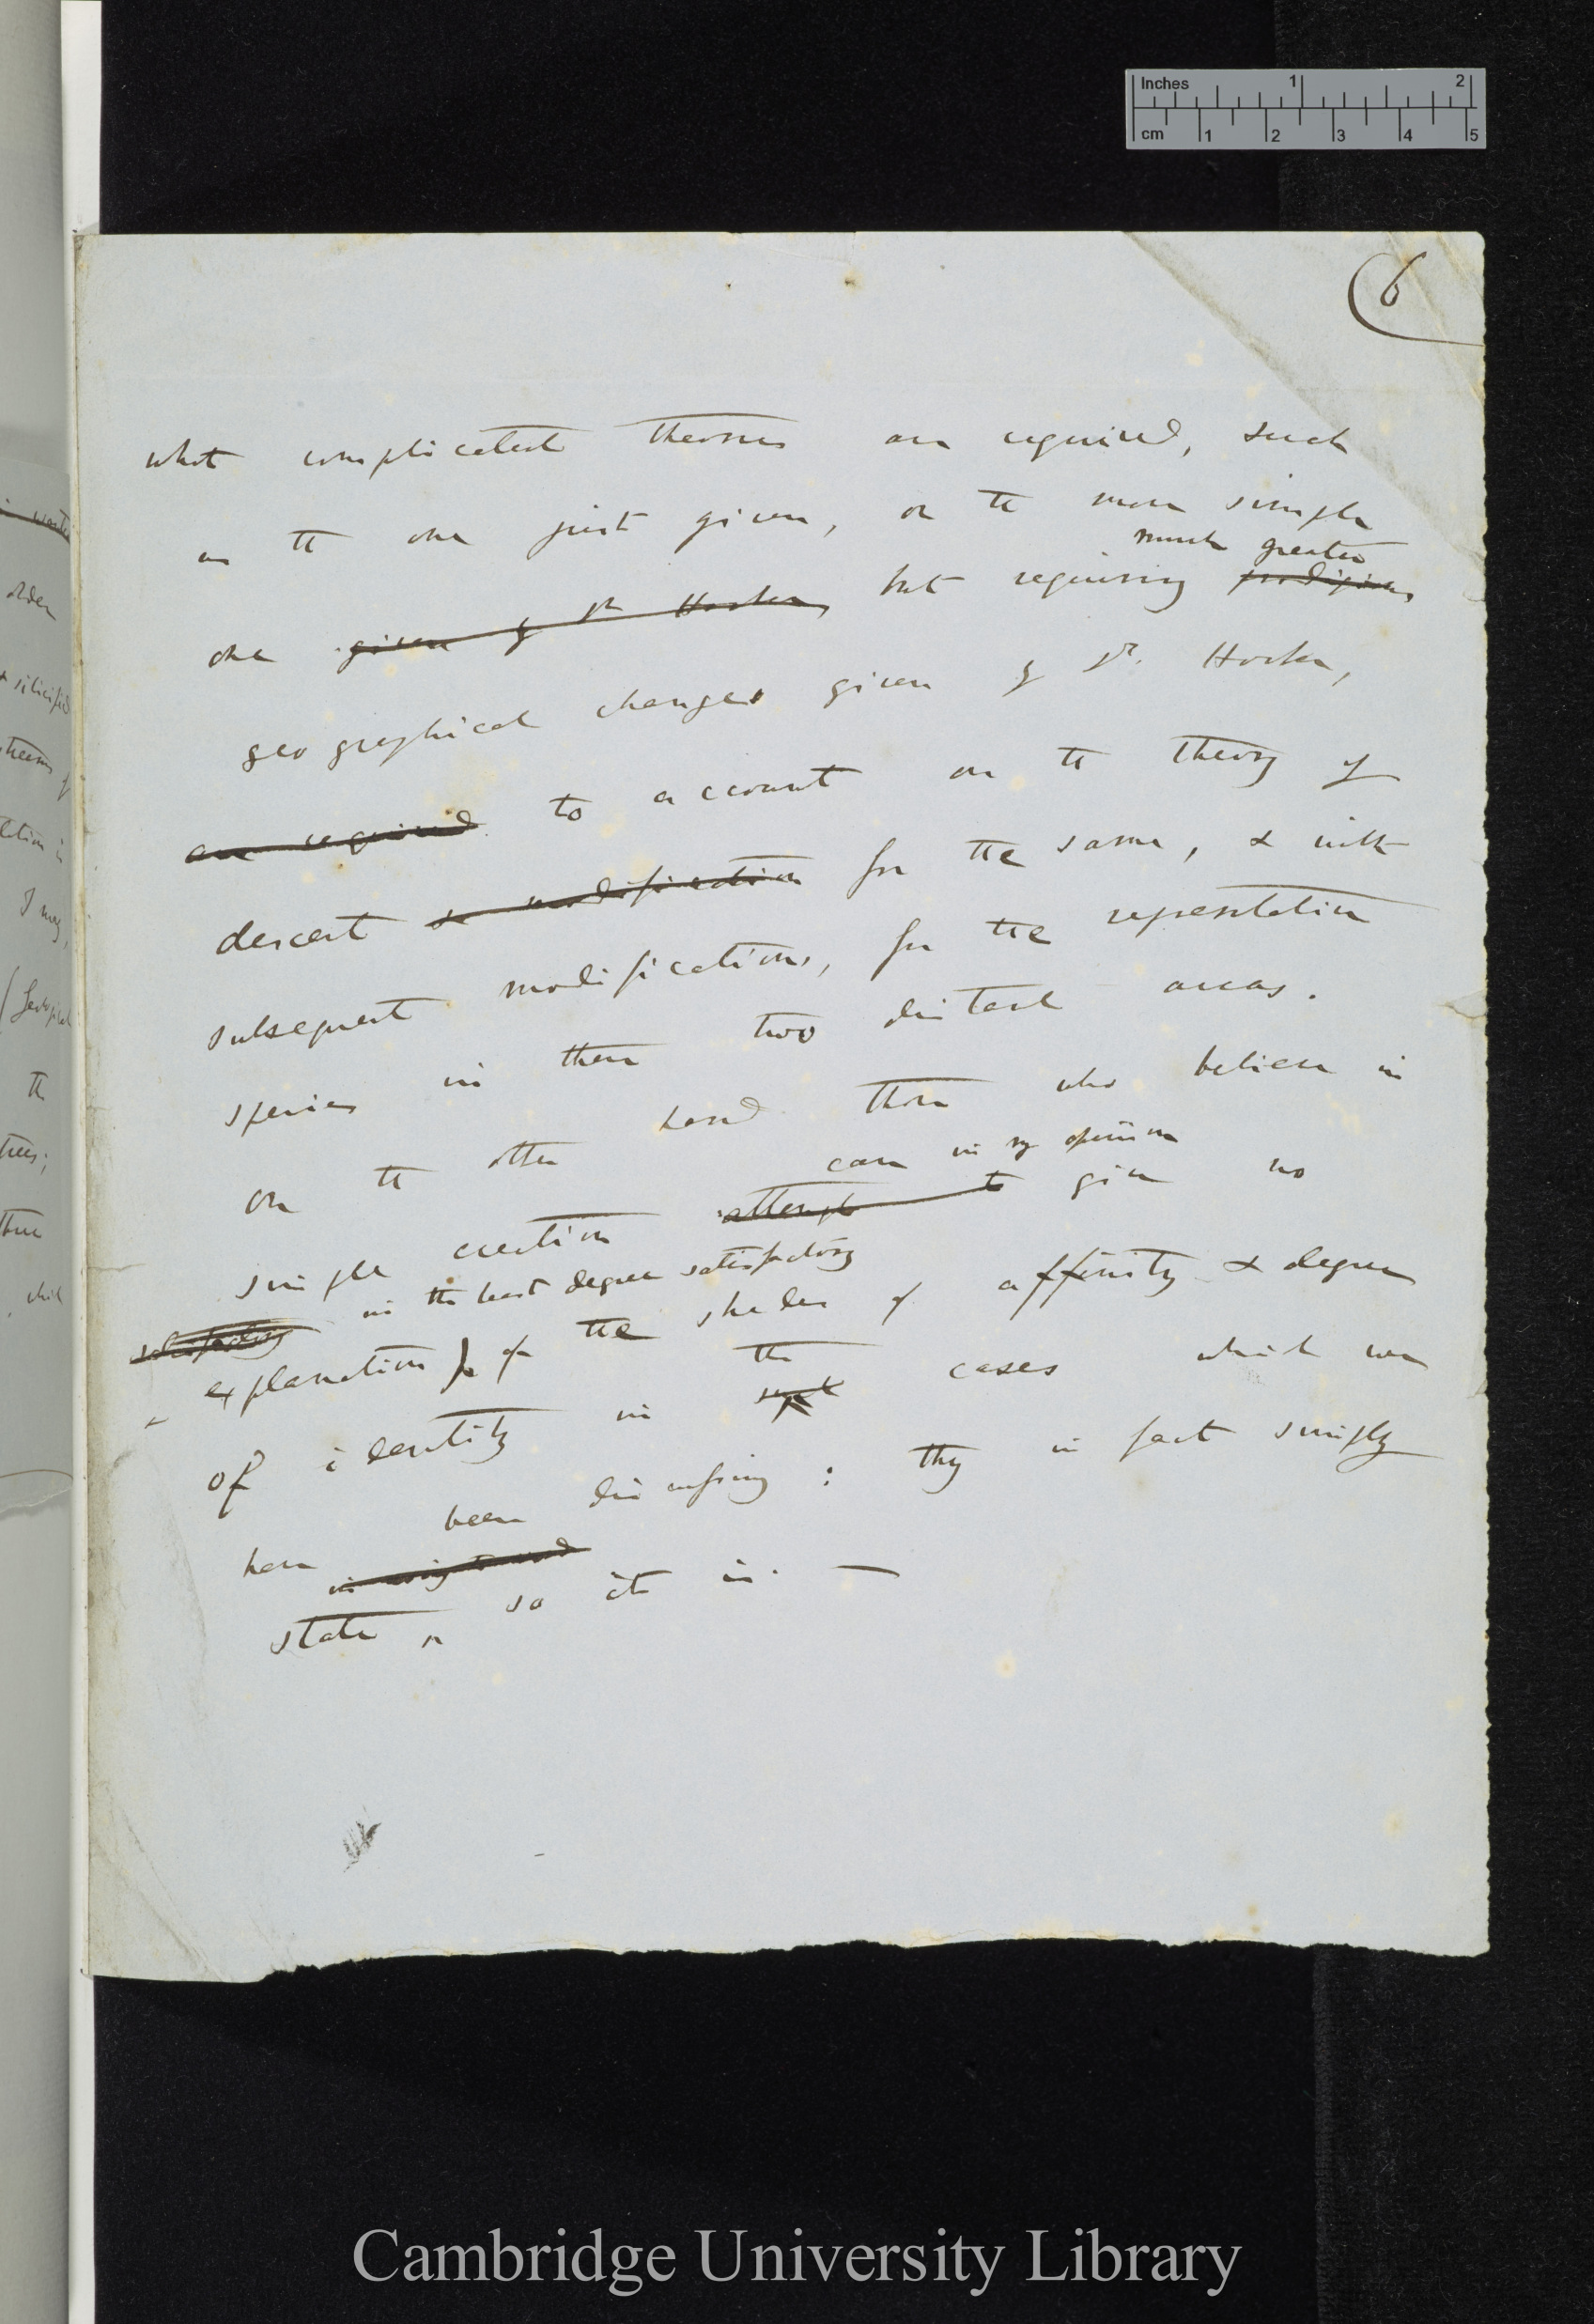 Inches 1 2
cm 1 2 3 4 5
6
what complicated theories are required, such
as the one just given, or the more simple
much greater
one given by Dr Hooker, but requiring prodigious
geographical changes given by Dr. Hooker,
are required to account on the theory of
descent & modification for the same, & with
subsequent modifications, for the representative
species in these two distant areas.
On the other hand those who believe in
can in my opinion
single creation attempt to give no
in the least degree satisfactory
satisfactory
explanation for of the shades of affinity & degrees
the
of identity in such cases which we
have been discussing: they in fact simply
state so it is. —
Cambridge University Library